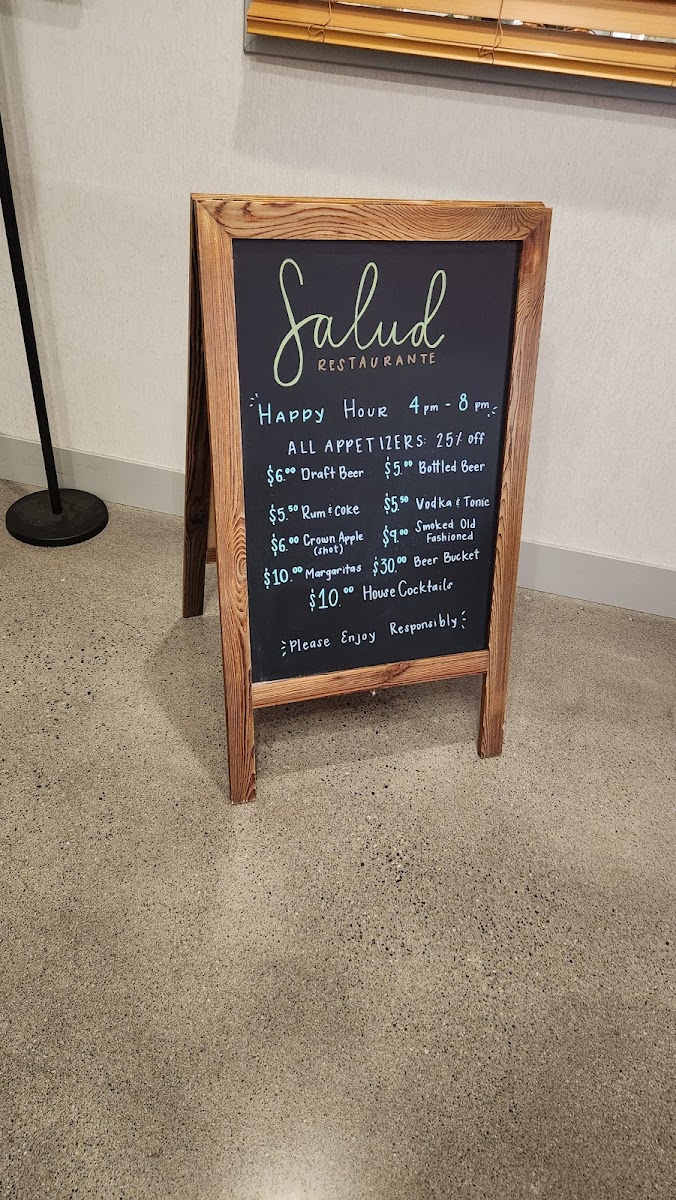 Salud
RESTAURANTE
HAPPY HOUR 4 pm - 8 pm
ALL APPETIZERS: 25% off
$6.00 Draft Beer $5.00 Bottled Beer
$5.50 Rum & Coke $5.50 Vodka & Tonic
$6.00 Crown Apple (shot) $9.00 Smoked Old Fashioned
$10.00 Margaritas $30.00 Beer Bucket
$10.00 House Cocktails
Please Enjoy Responsibly